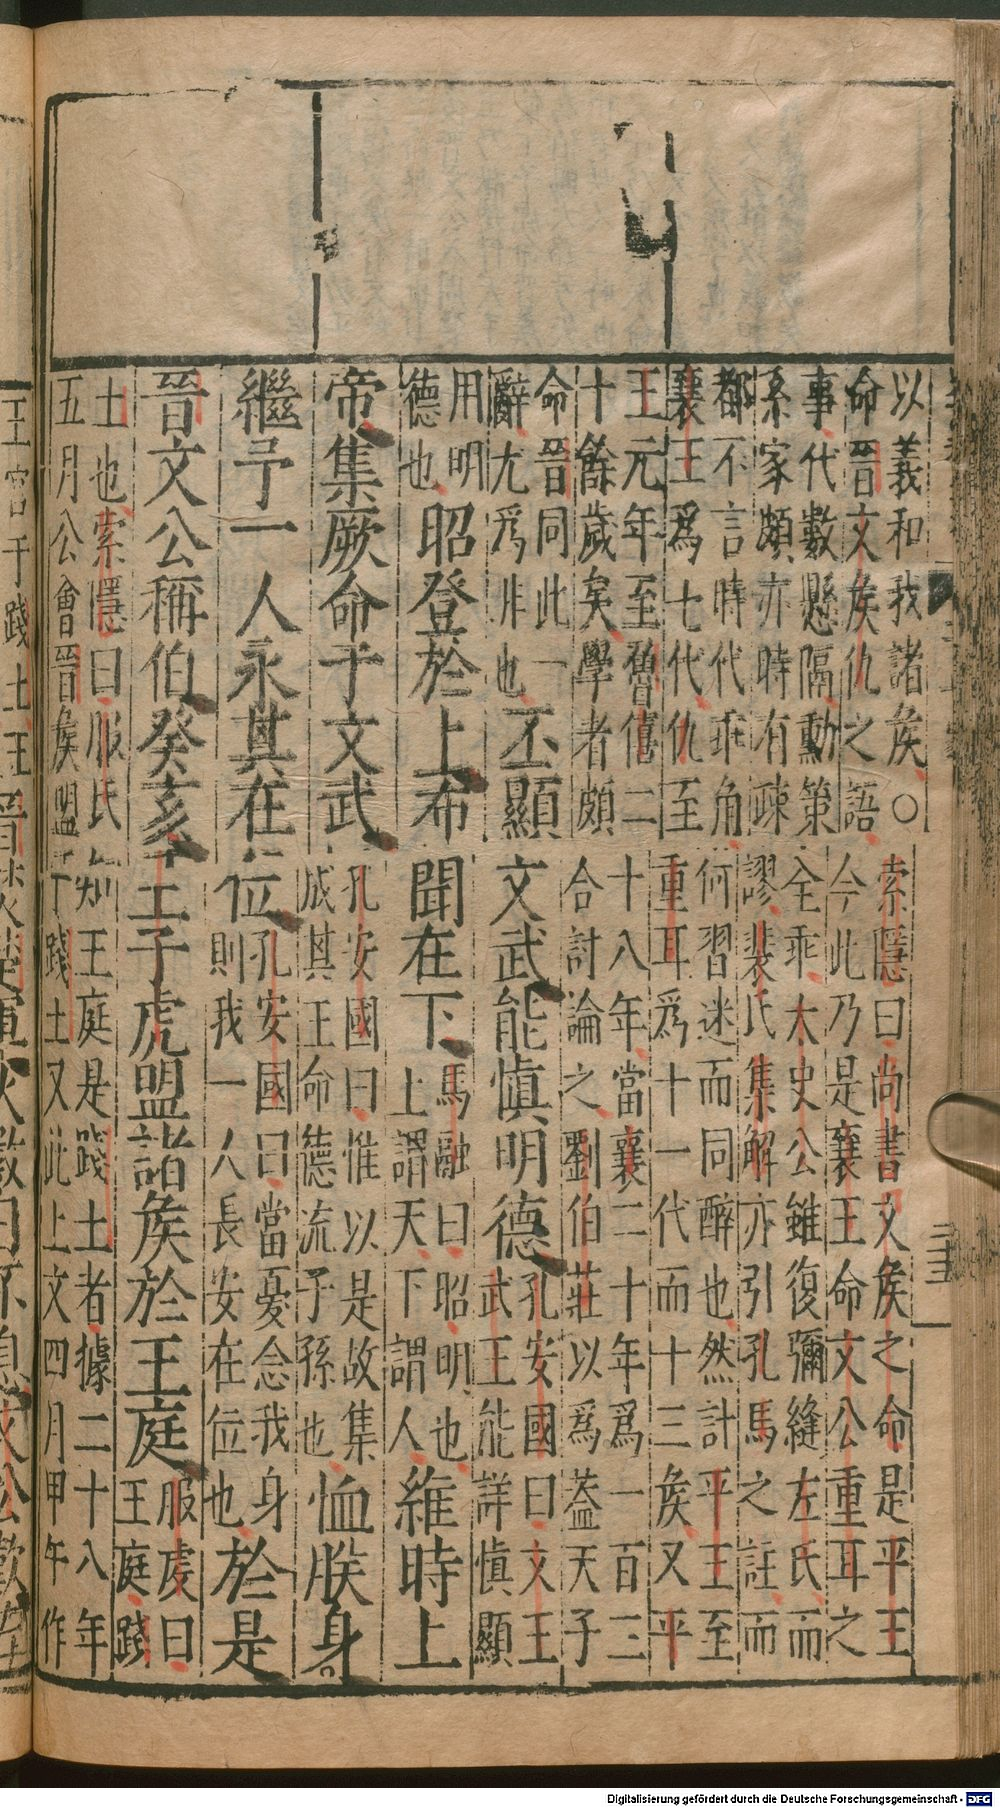 以義和我諸矦○索隱曰尚書文矦之命是平王
命晉文矦仇之語今此乃是襄王命文公重耳之
事代數懸隔勳策全乖太史公雖復彌縫左氏而
系家頗亦時有疎謬裴氏集解亦引孔馬之註而
都不言時代乖角何習迷而同醉也然計平王至
襄王爲七代仇至重耳爲十一代而十三矦又平
王元年至魯僖二十八年當襄二十年爲一百三
十餘歲矣學者頗合討論之劉伯莊以爲葢天子
命晉同此一
辭尤爲非也
丕顯文武能慎明德
孔安國曰文王
武王能詳慎顯
用明
德也
昭登於上布聞在下
馬融曰昭明也
上謂天下謂人
維時上
帝集厥命于文武
孔安國曰惟以是故集
成其王命德流子孫也
恤朕身
繼予一人永其在位
孔安國曰當憂念我身
則我一人長安在位也
於是
晉文公稱伯癸亥王子虎盟諸矦於王庭
服虔曰
王庭踐
土也索隱曰服氏知王庭是踐土者據二十八年
五月公會晉矦盟于踐土又此上文四月甲午作
王宮于踐土王
晉焚楚軍火數日不息文公歎
三十五
Digitalisierung gefördert durch die Deutsche Forschungsgemeinschaft - DFG